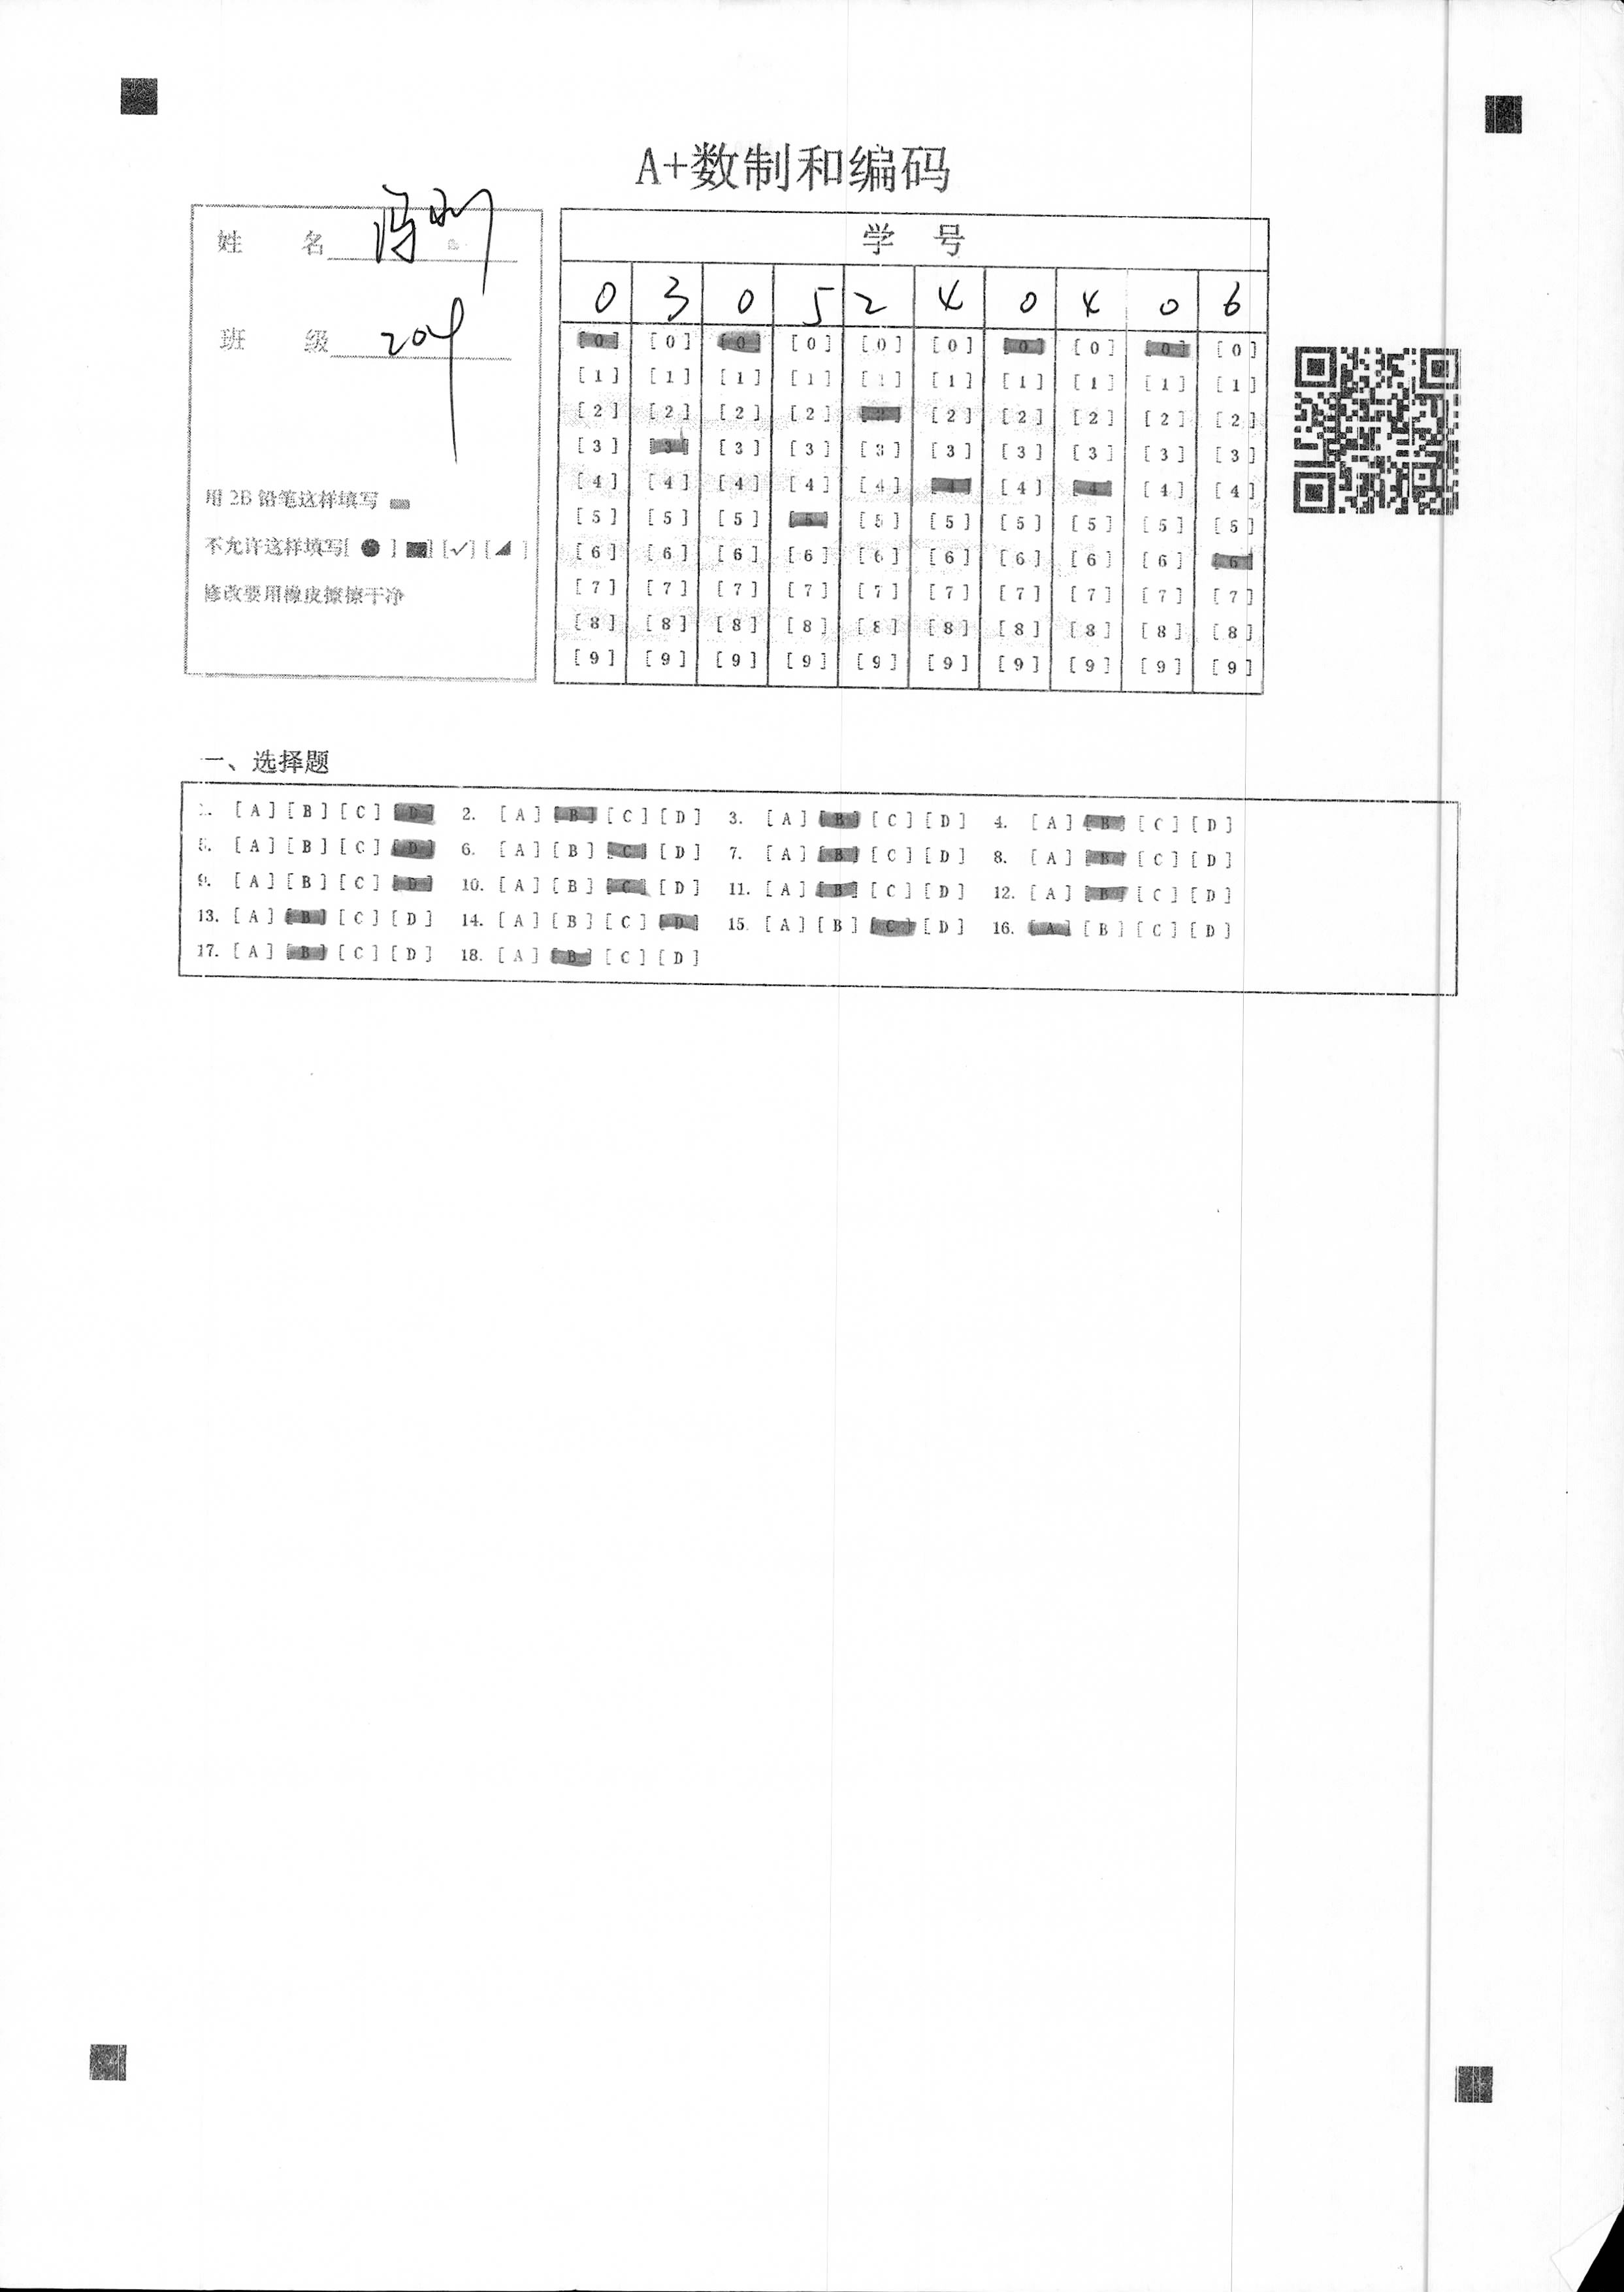 A+数制和编码
姓 名 冯
班 级 204
用 2B 铅笔这样填写
不允许这样填写[ ● ] [■] [✓] [◢ ]
修改要用橡皮擦擦干净
学 号
0 3 0 5 2 4 0 4 0 6
[0] [0] [0] [0] [0] [0] [0] [0] [0] [0]
[1] [1] [1] [1] [1] [1] [1] [1] [1] [1]
[2] [2] [2] [2] [2] [2] [2] [2] [2] [2]
[3] [3] [3] [3] [3] [3] [3] [3] [3] [3]
[4] [4] [4] [4] [4] [4] [4] [4] [4] [4]
[5] [5] [5] [5] [5] [5] [5] [5] [5] [5]
[6] [6] [6] [6] [6] [6] [6] [6] [6] [6]
[7] [7] [7] [7] [7] [7] [7] [7] [7] [7]
[8] [8] [8] [8] [8] [8] [8] [8] [8] [8]
[9] [9] [9] [9] [9] [9] [9] [9] [9] [9]
一、选择题
1. [A] [B] [C] [D] 2. [A] [B] [C] [D] 3. [A] [B] [C] [D] 4. [A] [B] [C] [D]
5. [A] [B] [C] [D] 6. [A] [B] [C] [D] 7. [A] [B] [C] [D] 8. [A] [B] [C] [D]
9. [A] [B] [C] [D] 10. [A] [B] [C] [D] 11. [A] [B] [C] [D] 12. [A] [B] [C] [D]
13. [A] [B] [C] [D] 14. [A] [B] [C] [D] 15. [A] [B] [C] [D] 16. [A] [B] [C] [D]
17. [A] [B] [C] [D] 18. [A] [B] [C] [D]